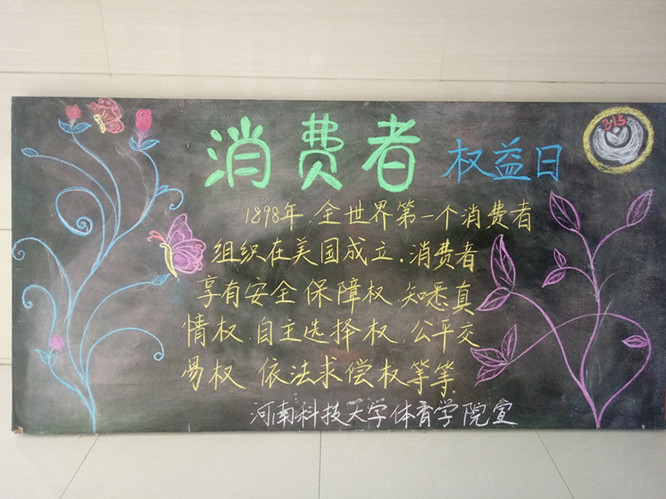 消费者 权益日
3.15
1898年.全世界第一个消费者
组织在美国成立.消费者
享有安全保障权.知悉真
情权.自主选择权.公平交
易权 依法求偿权等等
河南科技大学体育学院宣